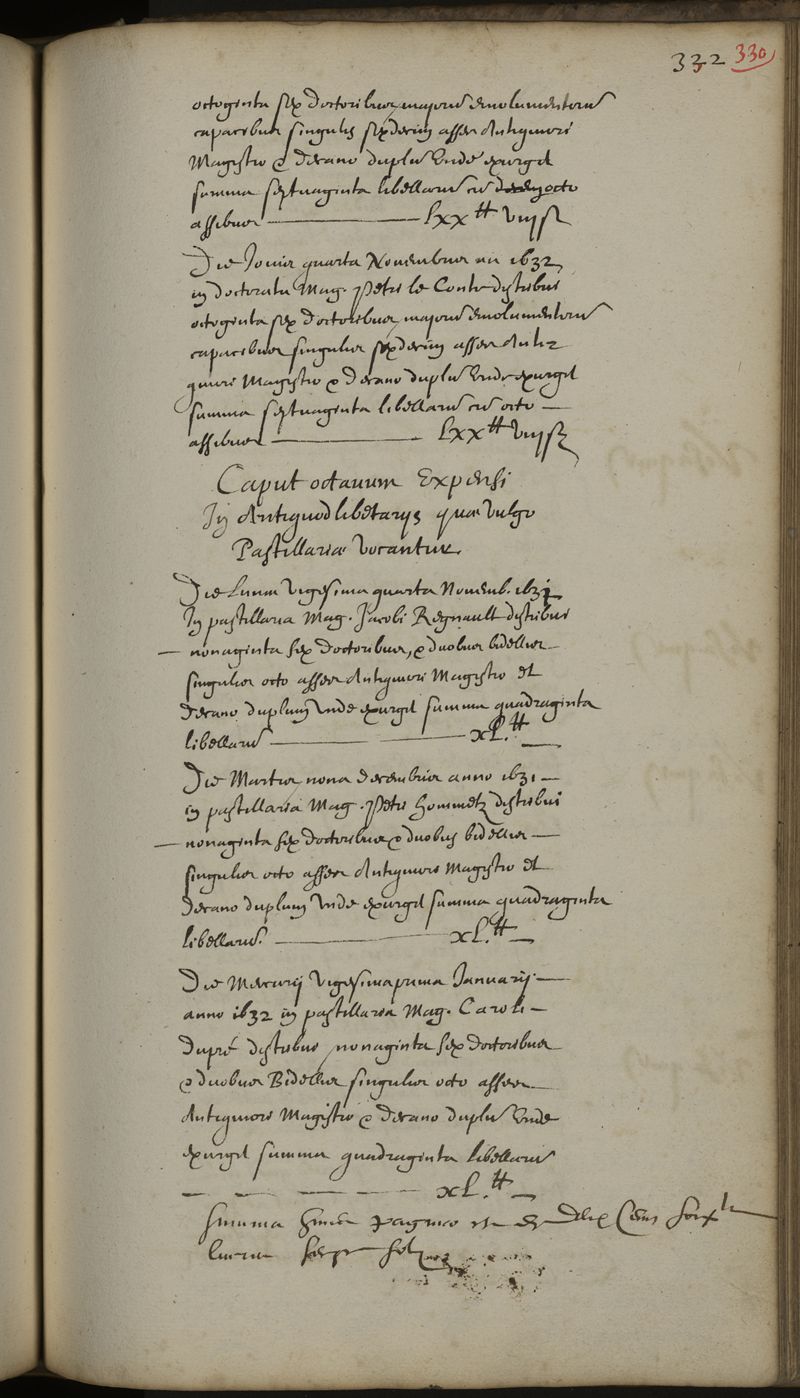 332 330
octoginta sex doctoribus majorum emolumentorum
capacibus singulis sexdecim asses Antiquiori
Magistro & Decano duplum Unde exurgit
summa septuaginta libellarum cum octo
assibus lxx tt viij s
Die Jovis quarta Novembris an 1632
in doctoratu Mag. Petri le Conte distribui
octoginta sex doctoribus majorum emolumentorum
capacibus singulis sexdecim asses Anti-
quiori Magistro & Decano duplum Unde exurgit
summa septuaginta libellarum cum octo
assibus lxx tt viij s
Caput octavum Expensi
In Antiquodlibetarijs quæ vulgo
Pastillariæ vocantur
Die Lunæ vigesima quarta Novemb. 1631
In pastillaria Mag. Jacobi Regnault distribui
nonaginta sex doctoribus, & duobus bidellis
singulis octo asses Antiquiori Magistro et
Decano duplum unde exurgit summa quadraginta
libellarum xl. tt
Die Martis nona decembris anno 1631
in pastillaria Mag. Petri Hommetz distribui
nonaginta sex doctoribus & duobus bidellis
singulis octo asses Antiquiori Magistro et
Decano duplum unde exurgit summa quadraginta
libellarum xl. tt
Die Mercurij vigesima prima Januarij
anno 1632 in pastillaria Mag. Caroli
Dupré distribui nonaginta sex doctoribus
& duobus Bidellis singulis octo asses
Antiquiori Magistro & Decano duplum Unde
exurgit summa quadraginta libellarum
xl. tt
summa